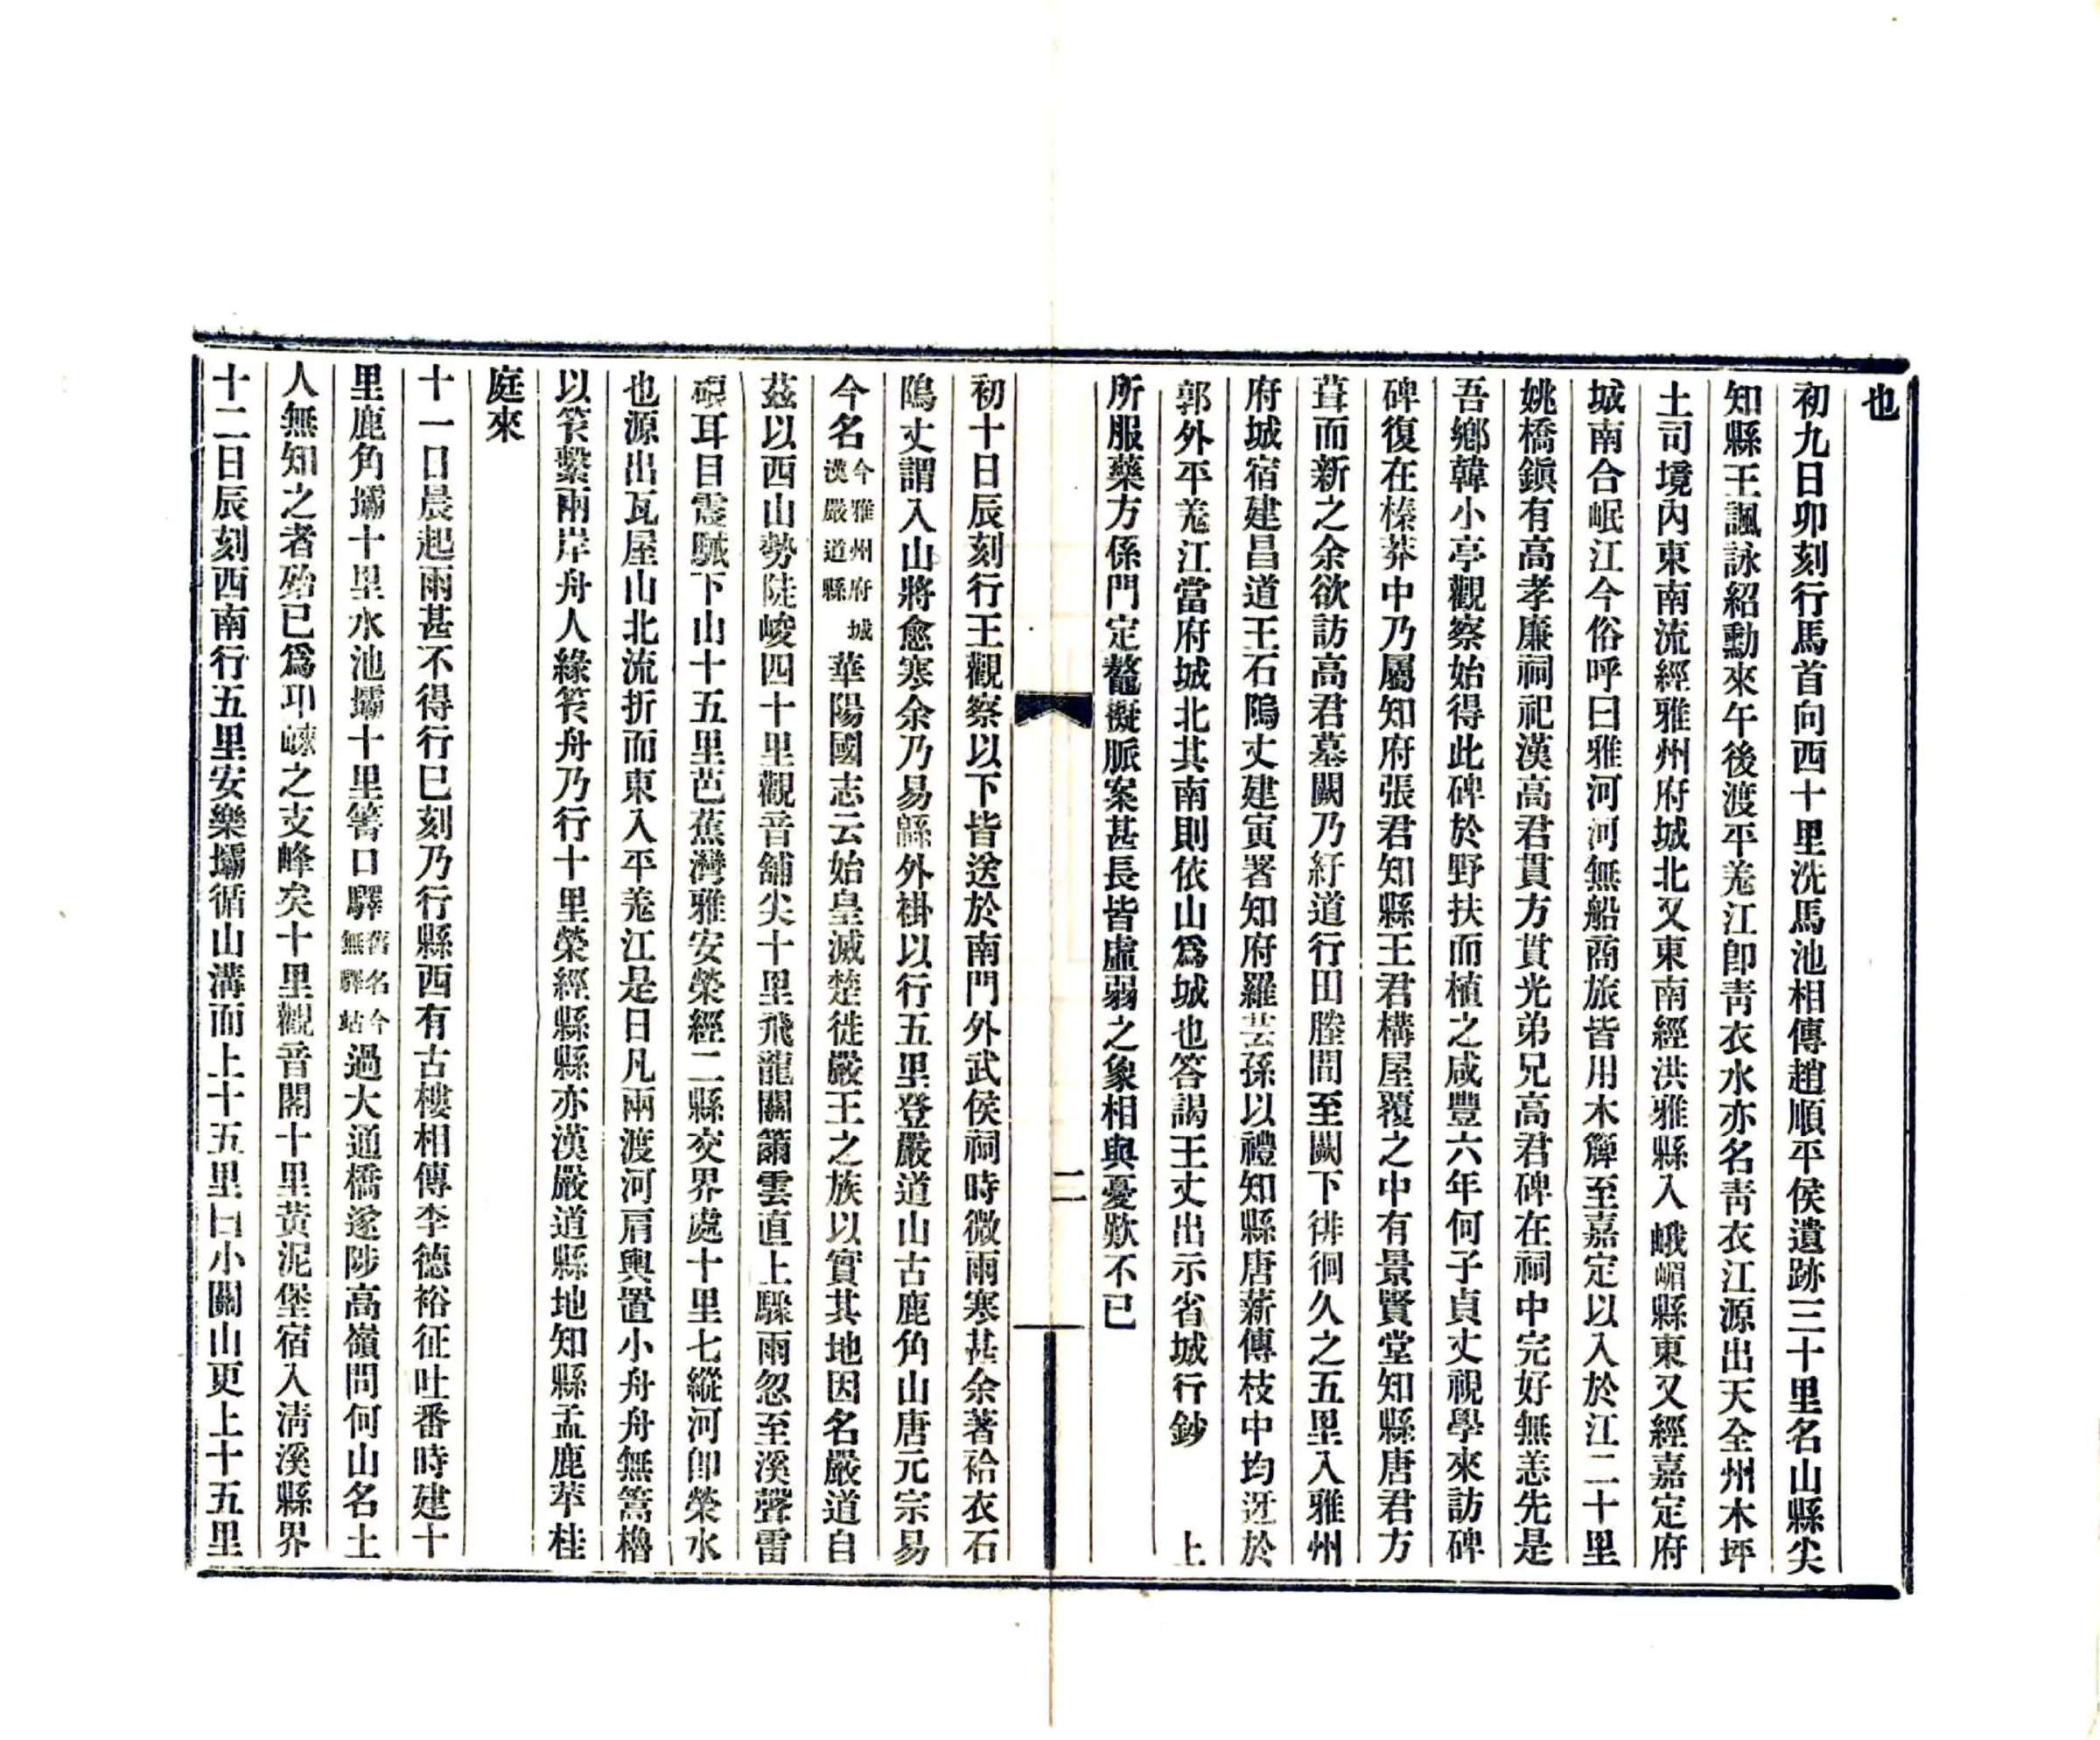 也
初九日卯刻行馬首向西十里洗馬池相傳趙順平侯遺跡三十里名山縣尖
知縣王諷詠紹勳來午後渡平羌江卽靑衣水亦名靑衣江源出天全州木坪
土司境內東南流經雅州府城北又東南經洪雅縣入峨嵋縣東又經嘉定府
城南合岷江今俗呼曰雅河河無船商旅皆用木簰至嘉定以入於江二十里
姚橋鎭有高孝廉祠祀漢高君貫方貫光弟兄高君碑在祠中完好無恙先是
吾鄉韓小亭觀察始得此碑於野扶而植之咸豐六年何子貞丈視學來訪碑
碑復在榛莽中乃屬知府張君知縣王君構屋覆之中有景賢堂知縣唐君方
葺而新之余欲訪高君墓闕乃紆道行田塍間至闕下徘徊久之五里入雅州
府城宿建昌道王石隖丈建寅署知府羅芸孫以禮知縣唐薪傳枝中均迓於
郭外平羌江當府城北其南則依山爲城也答謁王丈出示省城行鈔 上
所服藥方係門定鼇擬脈案甚長皆虛弱之象相與憂歎不已
二
初十日辰刻行王觀察以下皆送於南門外武侯祠時微雨寒甚余著袷衣石
隖丈謂入山將愈寒余乃易緜外褂以行五里登嚴道山古鹿角山唐元宗易
今名今雅州府城漢嚴道縣華陽國志云始皇滅楚徙嚴王之族以實其地因名嚴道自
茲以西山勢陡峻四十里觀音舖尖十里飛龍關籋雲直上驟雨忽至溪聲雷
硠耳目震駴下山十五里芭蕉灣雅安榮經二縣交界處十里七縱河卽榮水
也源出瓦屋山北流折而東入平羌江是日凡兩渡河肩輿置小舟舟無篙櫓
以笮繫兩岸舟人緣笮舟乃行十里榮經縣縣亦漢嚴道縣地知縣孟鹿苹桂
庭來
十一日晨起雨甚不得行巳刻乃行縣西有古樓相傳李德裕征吐番時建十
里鹿角壩十里水池壩十里箐口驛舊名今無驛站過大通橋遂陟高嶺問何山名土
人無知之者殆已爲邛崍之支峰矣十里觀音閣十里黃泥堡宿入淸溪縣界
十二日辰刻西南行五里安樂壩循山溝而上十五里曰小關山更上十五里